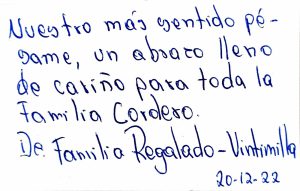 Nuestro más sentido pé-
same, un abrazo lleno
de cariño para toda la
Familia Cordero.
De Familia Regalado-Vintimilla
20-12-22